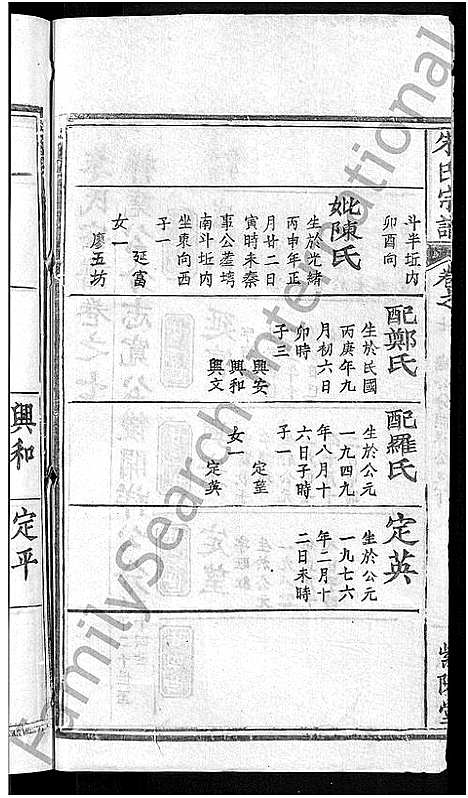 朱氏宗譜
卷之
紫陽堂
斗半坵内
卯酉向
妣陳氏
生於光緒
丙申年正
月廿二日
寅時未秦
事公塟塆
南斗坵内
坐東向西
子一
延富
女一
廖五坊
配鄭氏
生於民國
丙庚年九
月初六日
卯時
子三
興安
興和
興文
配羅氏
生於公元
一九四九
年八月十
六日子時
子一
定堃
女一
定英
定英
生於公元
一九七六
年二月十
二日未時
興和
定平
FamilySearch International